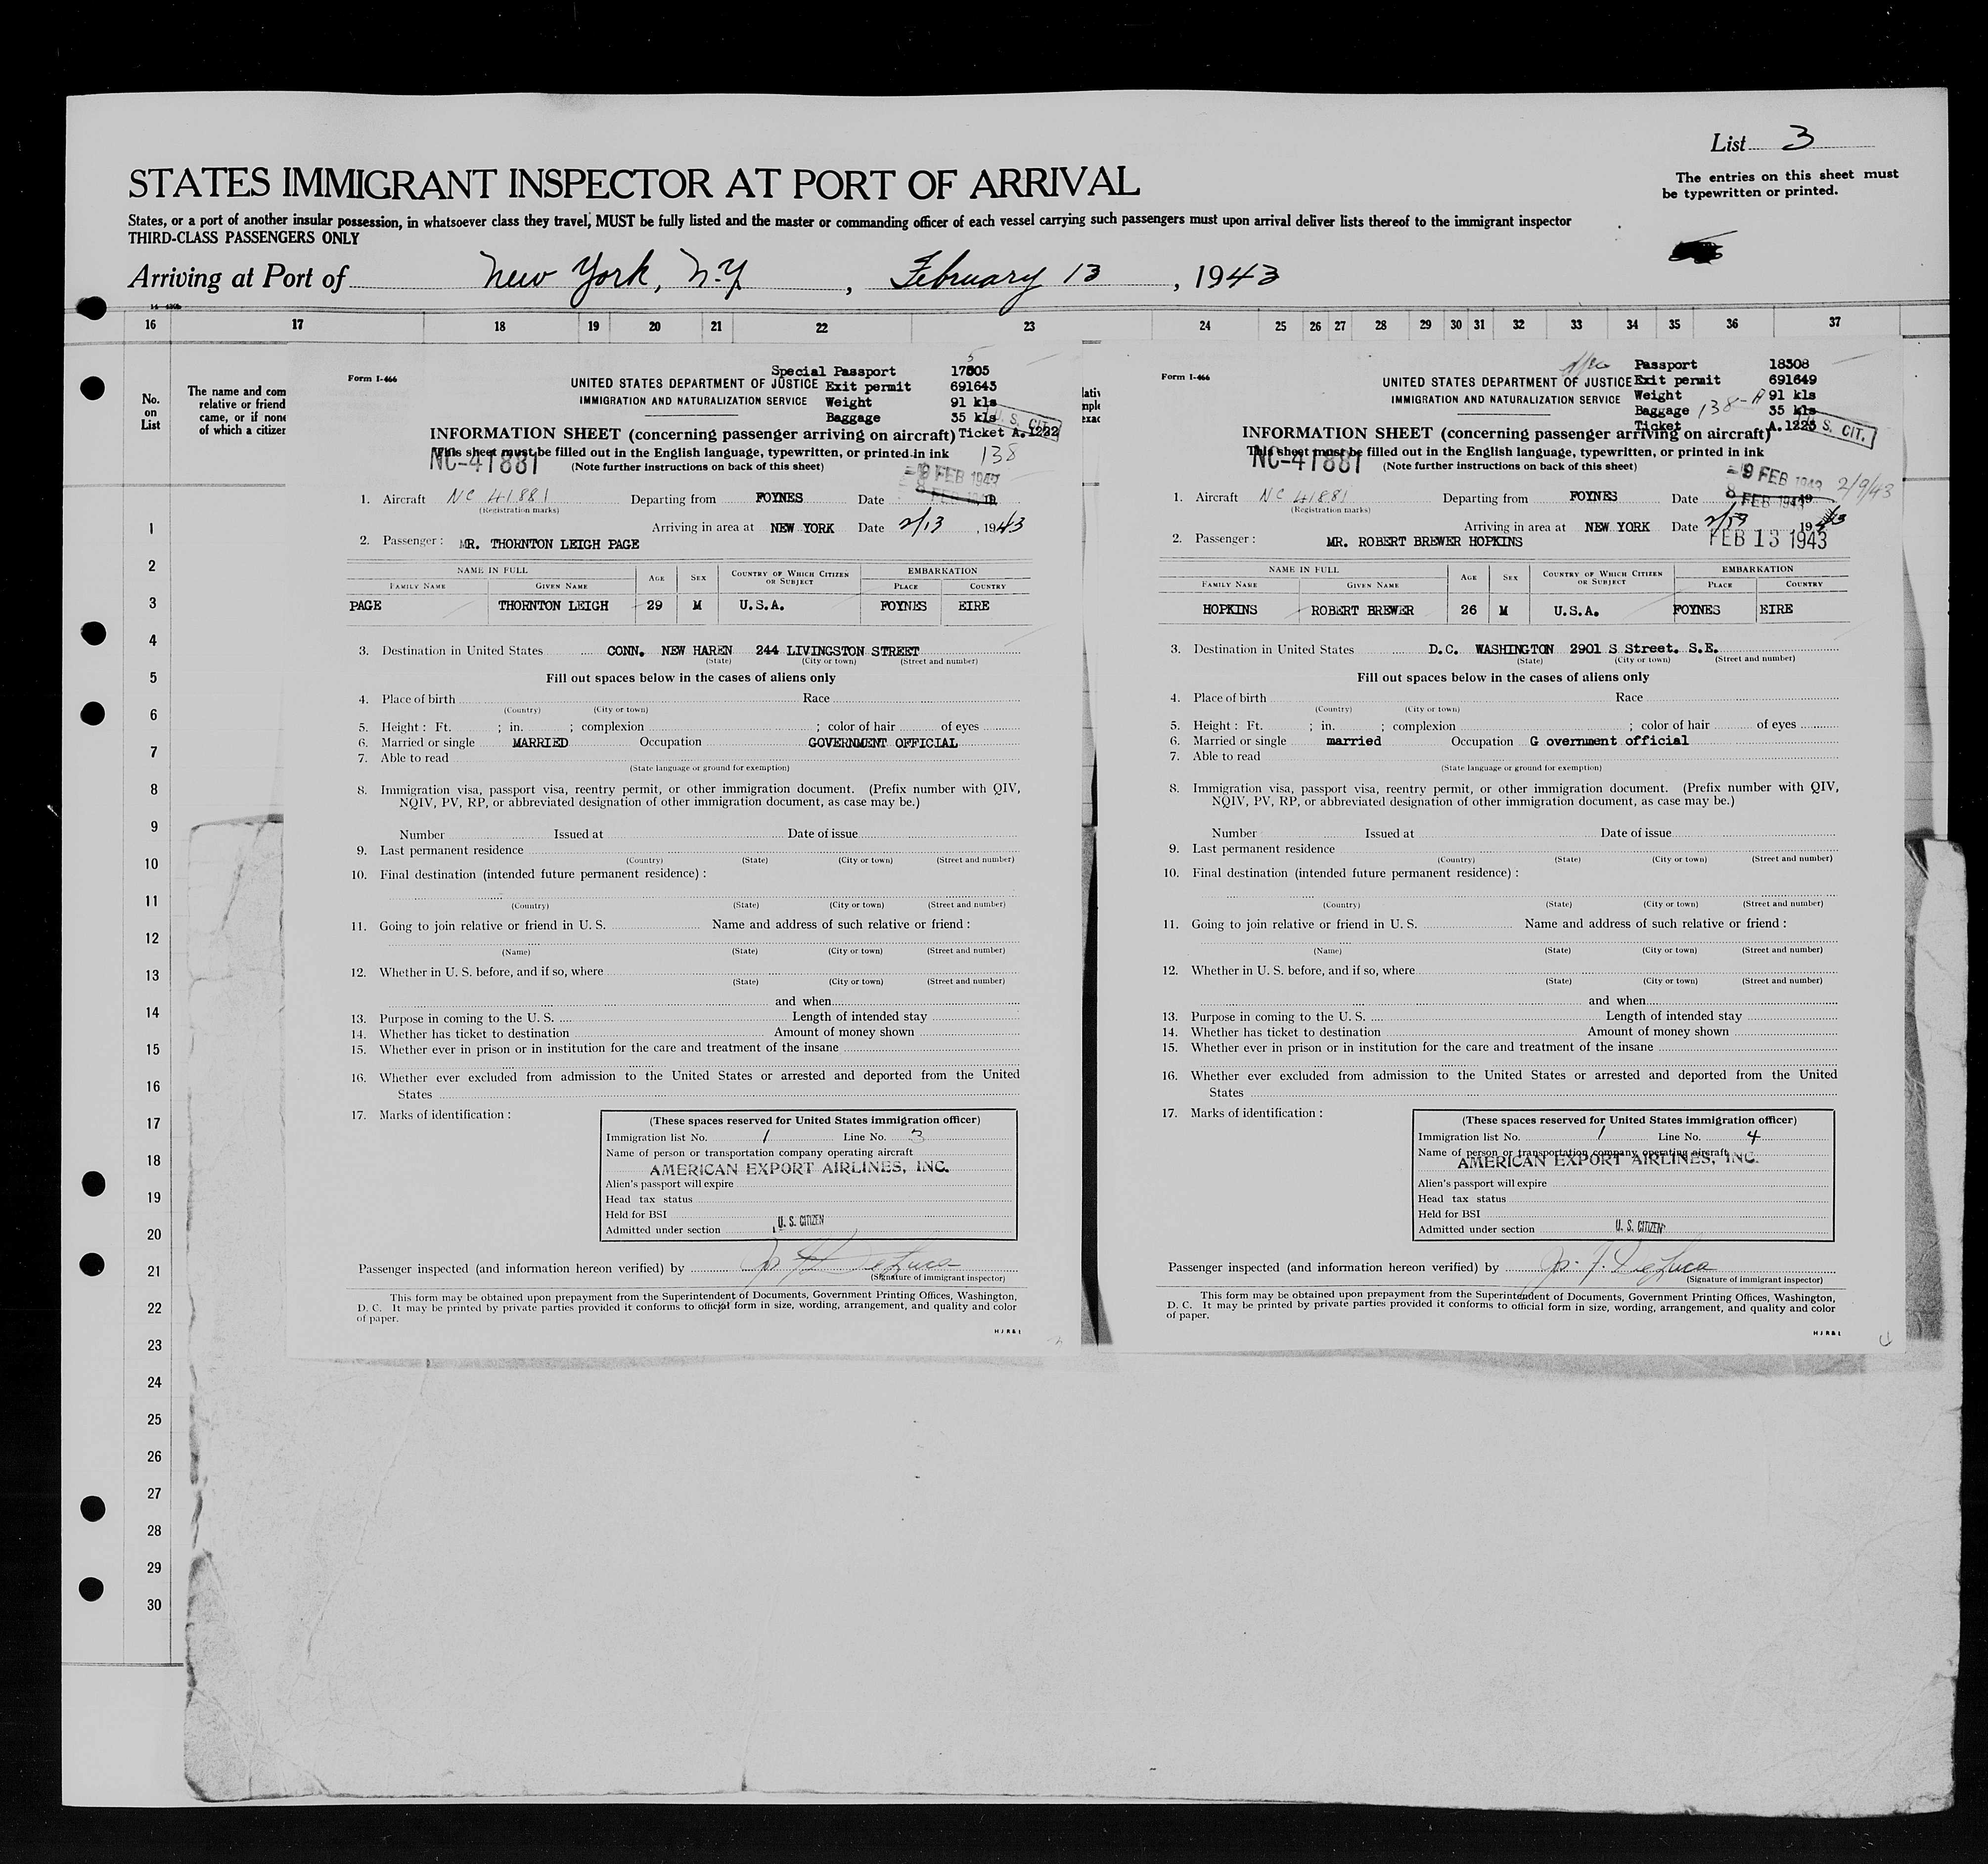 List 3
The entries on this sheet must
be typewritten or printed.
STATES IMMIGRANT INSPECTOR AT PORT OF ARRIVAL
States, or a port of another insular possession, in whatsoever class they travel, MUST be fully listed and the master or commanding officer of each vessel carrying such passengers must upon arrival deliver lists thereof to the immigrant inspector
THIRD-CLASS PASSENGERS ONLY
Arriving at Port of New York, N.Y, February 13, 1943
16 17 18 19 20 21 22 23 24 25 26 27 28 29 30 31 32 33 34 35 36 37
No.
on
List
The name and com
relative or friend
came, or if none
of which a citizen
1
2
3
4
5
6
7
8
9
10
11
12
13
14
15
16
17
18
19
20
21
22
23
24
25
26
27
28
29
30
Form I-466
Special Passport 17505
UNITED STATES DEPARTMENT OF JUSTICE Exit permit 691643
IMMIGRATION AND NATURALIZATION SERVICE Weight 91 kls
Baggage 35 kls
U. S. CIT.
INFORMATION SHEET (concerning passenger arriving on aircraft) Ticket A.1222
This sheet must be filled out in the English language, typewritten, or printed in ink 138
NC-41881
(Note further instructions on back of this sheet)
-9 FEB 1943
1. Aircraft NC 41881 Departing from FOYNES Date 8 FEB 19
(Registration marks)
Arriving in area at NEW YORK Date 2/13, 1943
2. Passenger: MR. THORNTON LEIGH PAGE
NAME IN FULL AGE SEX COUNTRY OF WHICH CITIZEN OR SUBJECT EMBARKATION
FAMILY NAME GIVEN NAME PLACE COUNTRY
PAGE THORNTON LEIGH 29 M U.S.A. FOYNES EIRE
3. Destination in United States CONN. NEW HAREN 244 LIVINGSTON STREET
(State) (City or town) (Street and number)
Fill out spaces below in the cases of aliens only
4. Place of birth Race
(Country) (City or town)
5. Height: Ft. ; in. ; complexion ; color of hair of eyes
6. Married or single MARRIED Occupation GOVERNMENT OFFICIAL
7. Able to read
(State language or ground for exemption)
8. Immigration visa, passport visa, reentry permit, or other immigration document. (Prefix number with QIV,
NQIV, PV, RP, or abbreviated designation of other immigration document, as case may be.)
Number Issued at Date of issue
9. Last permanent residence
(Country) (State) (City or town) (Street and number)
10. Final destination (intended future permanent residence):
(Country) (State) (City or town) (Street and number)
11. Going to join relative or friend in U. S. Name and address of such relative or friend:
(Name) (State) (City or town) (Street and number)
12. Whether in U. S. before, and if so, where
(State) (City or town) (Street and number)
and when
13. Purpose in coming to the U. S. Length of intended stay
14. Whether has ticket to destination Amount of money shown
15. Whether ever in prison or in institution for the care and treatment of the insane
16. Whether ever excluded from admission to the United States or arrested and deported from the United
States
17. Marks of identification:
(These spaces reserved for United States immigration officer)
Immigration list No. 1 Line No. 3
Name of person or transportation company operating aircraft
AMERICAN EXPORT AIRLINES, INC.
Alien's passport will expire
Head tax status
Held for BSI
Admitted under section U. S. CITIZEN
Passenger inspected (and information hereon verified) by
(Signature of immigrant inspector)
This form may be obtained upon prepayment from the Superintendent of Documents, Government Printing Offices, Washington,
D. C. It may be printed by private parties provided it conforms to official form in size, wording, arrangement, and quality and color
of paper.
H J R & I
Form I-466
Passport 18308
UNITED STATES DEPARTMENT OF JUSTICE Exit permit 691649
IMMIGRATION AND NATURALIZATION SERVICE Weight 91 kls
Baggage 138-A 35 kls
Ticket A.1223
U. S. CIT.
INFORMATION SHEET (concerning passenger arriving on aircraft)
This sheet must be filled out in the English language, typewritten, or printed in ink
NC-41881
(Note further instructions on back of this sheet)
-9 FEB 1943 2/9/43
1. Aircraft NC 41881 Departing from FOYNES Date 8 FEB 1943
(Registration marks)
Arriving in area at NEW YORK Date 2/13 1943
FEB 13 1943
2. Passenger: MR. ROBERT BREWER HOPKINS
NAME IN FULL AGE SEX COUNTRY OF WHICH CITIZEN OR SUBJECT EMBARKATION
FAMILY NAME GIVEN NAME PLACE COUNTRY
HOPKINS ROBERT BREWER 26 M U.S.A. FOYNES EIRE
3. Destination in United States D.C. WASHINGTON 2901 S Street. S.E.
(State) (City or town) (Street and number)
Fill out spaces below in the cases of aliens only
4. Place of birth Race
(Country) (City or town)
5. Height: Ft. ; in. ; complexion ; color of hair of eyes
6. Married or single married Occupation G overnment official
7. Able to read
(State language or ground for exemption)
8. Immigration visa, passport visa, reentry permit, or other immigration document. (Prefix number with QIV,
NQIV, PV, RP, or abbreviated designation of other immigration document, as case may be.)
Number Issued at Date of issue
9. Last permanent residence
(Country) (State) (City or town) (Street and number)
10. Final destination (intended future permanent residence):
(Country) (State) (City or town) (Street and number)
11. Going to join relative or friend in U. S. Name and address of such relative or friend:
(Name) (State) (City or town) (Street and number)
12. Whether in U. S. before, and if so, where
(State) (City or town) (Street and number)
and when
13. Purpose in coming to the U. S. Length of intended stay
14. Whether has ticket to destination Amount of money shown
15. Whether ever in prison or in institution for the care and treatment of the insane
16. Whether ever excluded from admission to the United States or arrested and deported from the United
States
17. Marks of identification:
(These spaces reserved for United States immigration officer)
Immigration list No. 1 Line No. 4
Name of person or transportation company operating aircraft
AMERICAN EXPORT AIRLINES, INC.
Alien's passport will expire
Head tax status
Held for BSI
Admitted under section U. S. CITIZEN
Passenger inspected (and information hereon verified) by
(Signature of immigrant inspector)
This form may be obtained upon prepayment from the Superintendent of Documents, Government Printing Offices, Washington,
D. C. It may be printed by private parties provided it conforms to official form in size, wording, arrangement, and quality and color
of paper.
H J R & I